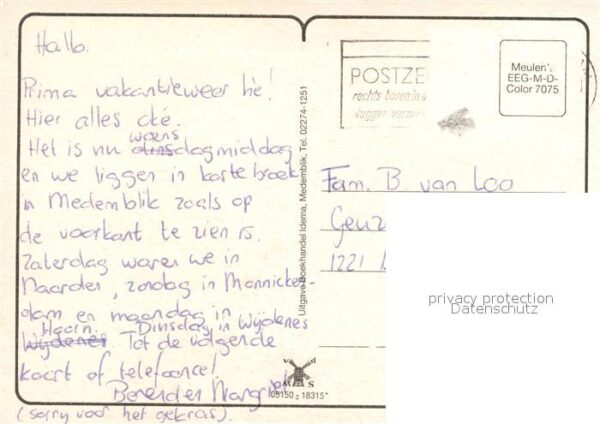 Hallo.
Prima vakantieweer hè!
Hier alles oké.
woens
Het is nu dinsdagmiddag
en we liggen in korte broek
in Medemblik zoals op
de voorkant te zien is.
Zaterdag waren we in
Naarden, zondag in Monnicken-
dam en maandag in
Hoorn. Dinsdag in Wijdenes
Wijdenes Tot de volgende
kaart of telefoonce!
Berend en Margriet
(sorry voor het gekras).
Uitgave Boekhandel Idema, Medemblik, Tel. 02274-1251
v d
M A S
05150 z 18315*
POSTZE
rechts boven in d
vlugger verzon
Meulen'.
EEG-M-D-
Color 7075
Fam. B. van Loo
Geuz
1221
privacy protection
Datenschutz